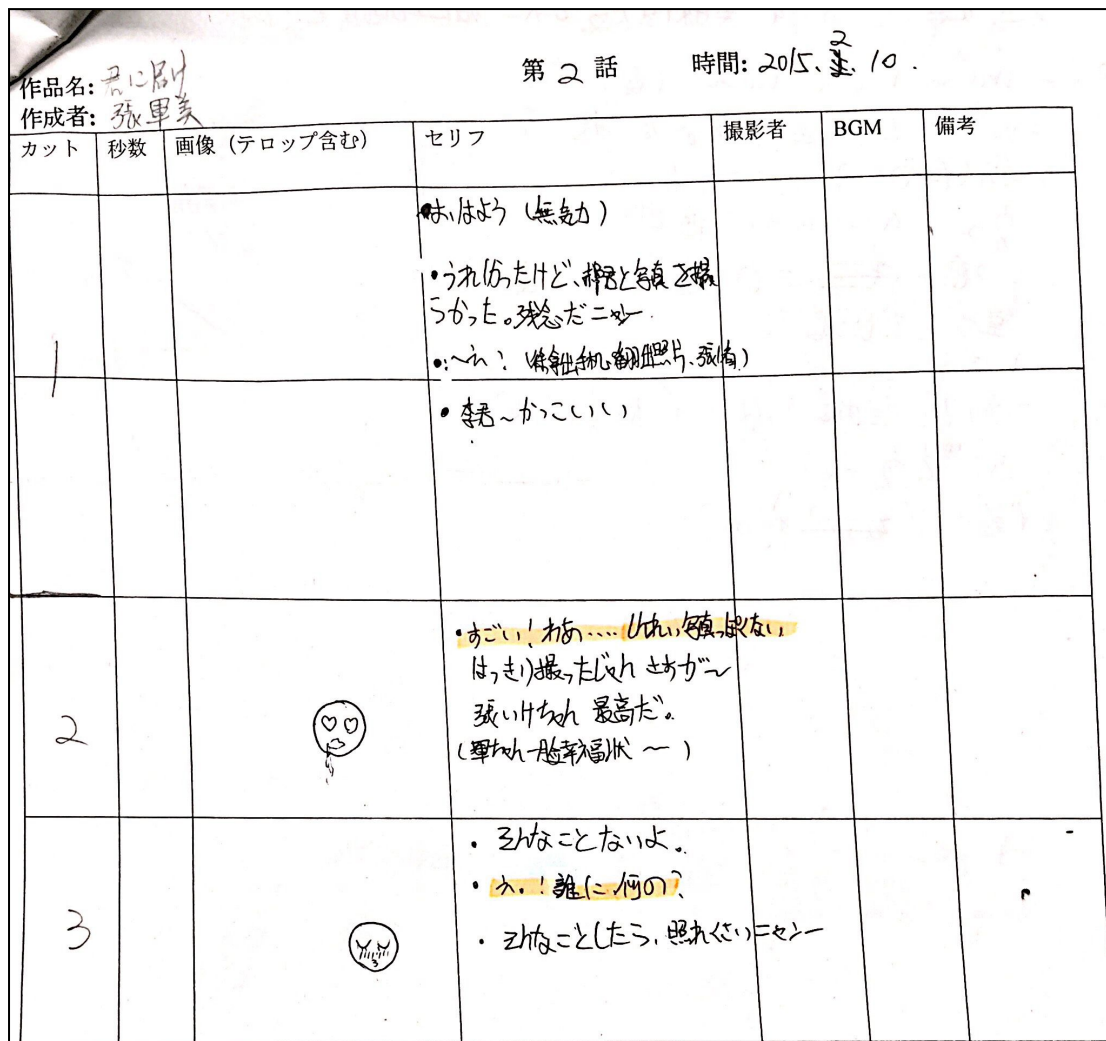 作品名: 君に届け
作成者: 張軍美
第 2 話
時間: 2015. 2. 10.
カット 秒数 画像 (テロップ含む) セリフ 撮影者 BGM 備考
1
はよう (無気力)
・うれしかったけど、と写真を撮
らかった。残念だニャー
・李君~かっこいい
2
・すごい!わあ.....写真っぽくない
はっきり撮ったじゃん さすが~
張いけちゃん 最高だ。
(軍ちゃん一脸幸福状 ~ )
3
・そんなことないよ。
・え。!誰に、何の?
・そんなことしたら、照れくさいニャンー